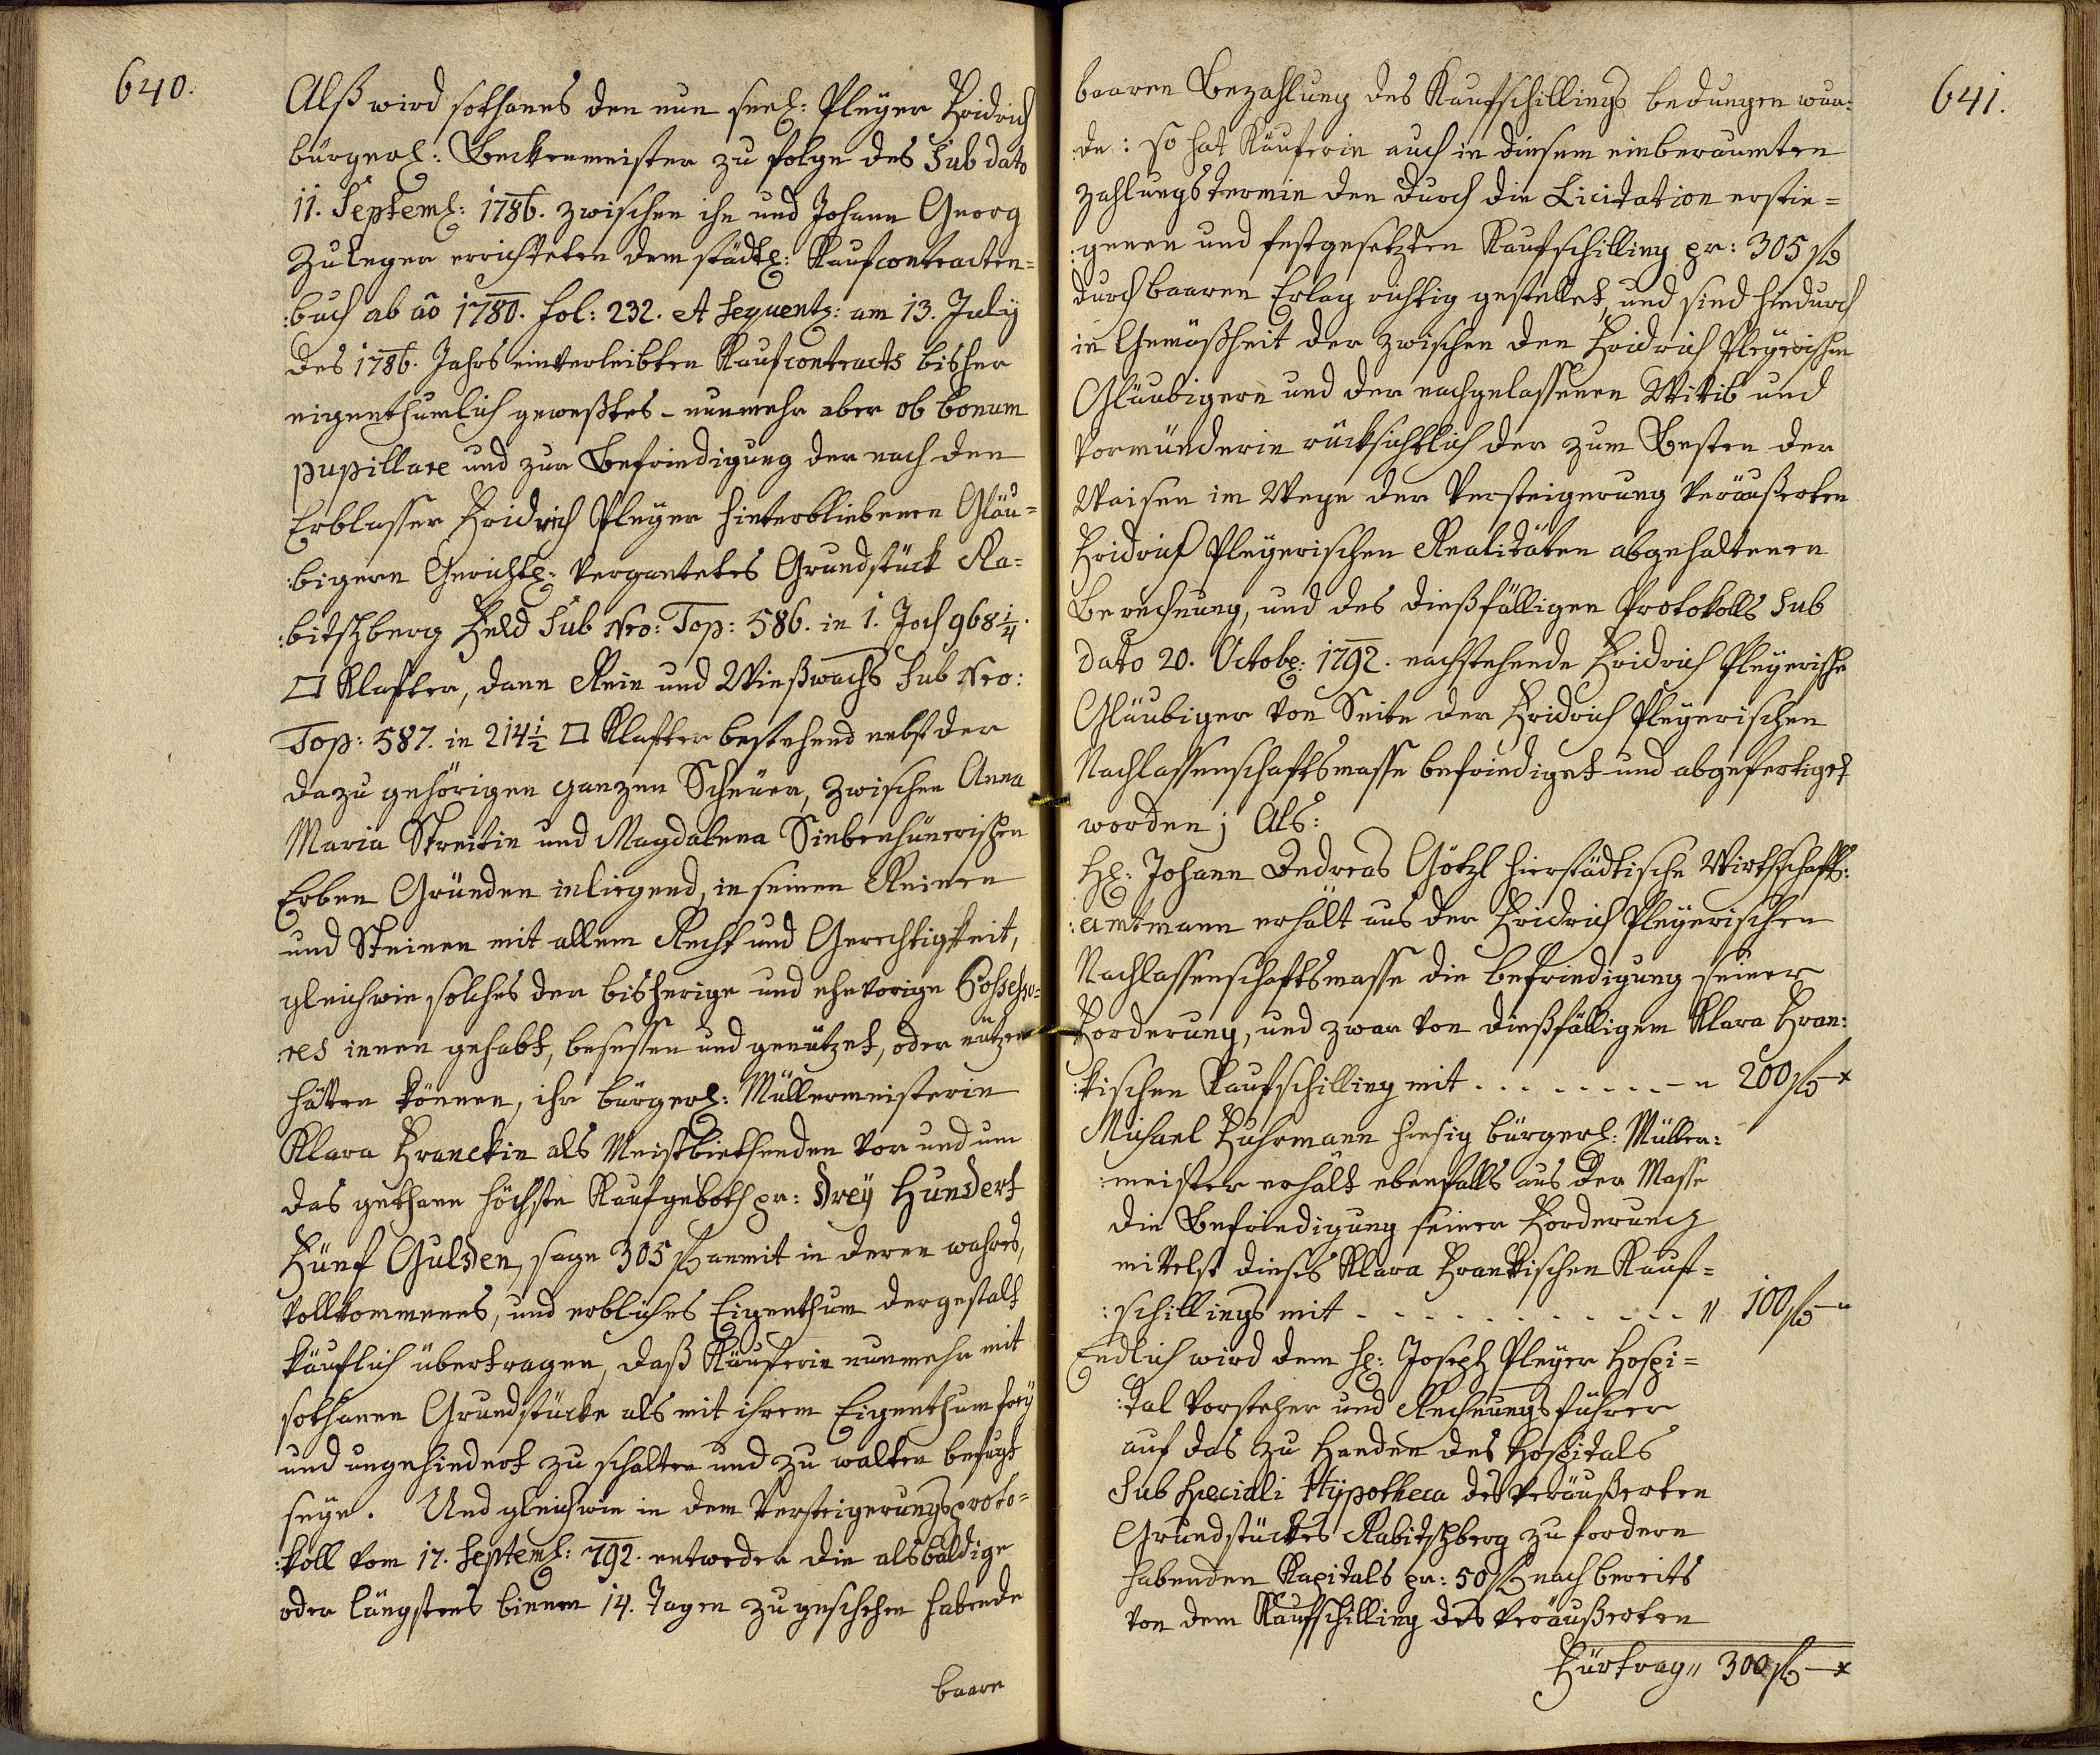 640.
Alß wird sothanes den nun seel: Pleyer Fridrich
bürgerl: Beckenmeister zu folge des Sub dato
11. Septeml: 1786. zwischen ihn und Johann Georg
Zuleger errichteten dem städtl: Kaufcontracten=
:buch ab aō 1780. fol: 232. et sequents: am 13. July
des 1786. Jahrs einverleibten Kaufcontracts bisher
eigenthumlich geweßtes - nunmehr aber ob bonum
pupillare und zur Befriedigung der nach den
Erblasser Fridrich Pleyer hinterbliebenen Gläu=
:bigern Gerichtl: vergantetes Grundstück Ra=
:bitschberg Feld Sub Nro: Top: 586. in 1. Joch 968 1/4.
□ Klafter, dann Rein und Wießwachs Sub Nro:
Top: 587. in 214 1/2 □ Klafter bestehend nebst der
dazu gehörigen ganzen Scheuer, zwischen Anna
Maria Streitin und Magdalena Siebenhünerischen
Erben Gründen inliegend, in seinen Reinen
und Steinen mit allem Recht und Gerechtigkeit,
gleichwie solches der bisherige und ehevorige Possesso=
res innen gehabt, besessen und genützet, oder nützen
hätten können, ihr bürgerl: Müllermeisterin
Klara Franckin als Meistbiethenden vor und um
das gethane höchste Kaufgeboth pr: Drey Hundert
Fünf Gulden, sage 305 fl anmit in deren wahres,
vollkommenes, und erbliches Eigenthum dergestalt
käuflich übertragen, daß Käuferin nunmehr mit
sothanen Grundstücke als mit ihrem Eigenthum frey
und ungehindert zu schalten und zu walten befugt
seye. Und gleichwie in dem Versteigerungsproto=
:koll vom 17. Septeml: 792. entweder die alsbaldige
oder längstens binnen 14. Tagen zu geschehen habende
baare
641.
baaren Bezahlung des Kaufschillings bedungen wur:
:de: so hat Käuferin auch in diesem einberaumten
Zahlungstermin den durch die Licitation erstie=
:genen und festgesetzten Kaufschilling pr: 305 fl
durch baaren Erlag richtig gestellet, und sind hiedurch
in Gemäßheit der zwischen den Fridrich Pleyerischen
Gläubigern und der nachgelassenen Wittib und
Vormünderin rücksichtlich der zum Besten der
Waisen im Wege der Versteigerung veräußerten
Fridrich Pleyerischen Realitäten abgehaltenen
Berechnung, und des dießfälligen Protokolls Sub
dato 20. Octobl: 1792. nachstehende Fridrich Pleyerische
Gläubiger von Seite der Fridrich Pleyerischen
Nachlassenschaftsmasse befriediget und abgefertiget
worden; Als:
Hl: Johann Andreas Götzl hierstädtische Wirthschafts:
:amtmann erhält aus der Fridrich Pleyerischen
Nachlassenschaftsmasse die befriedigung seiner
Forderung, und zwar von dießfälligem Klara Fran:
:kischen Kaufschilling mit . . . . . . . . - „ 200 fl - x
Michael Fuhrmann hiesig bürgerl: Müller:
:meister erhält ebenfalls aus der Masse
die Befriedigung seiner Forderung
mittelst dieses Klara Frankischen Kauf=
:schillings mit . . . . . . . . . . . „ 100 fl - „
Endlich wird dem Hl: Joseph Pleyer Hospi=
:tal Vorsteher und Rechnungsführer
auf das zu Handen des Hospitals
Sub speciali Hypotheca des veräußerten
Grundstückes Rabitschberg zu fordern
habenden Kapitals pr: 50 fl nach bereits
von dem Kaufschilling des veräußerten
Fürtrag „ 300 fl - x